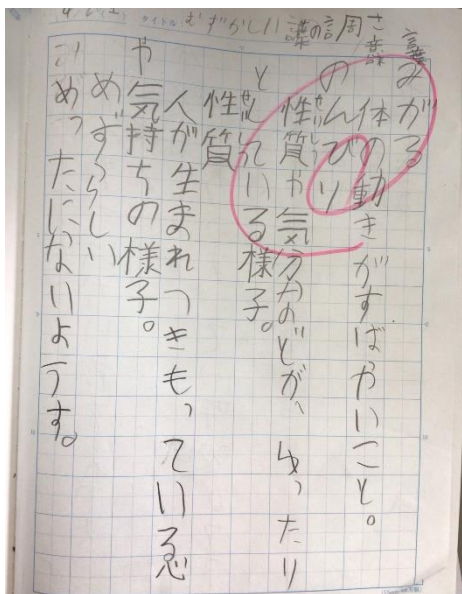 タイトル むずかしい言葉の
みがる
体の動きがすばやいこと。
のんびり
せいしつ
性質や気分などが、ゆったり
としている様子。
性質
人が生まれつきもっている心
や気持ちの様子。
めずらしい
めったにないようす。